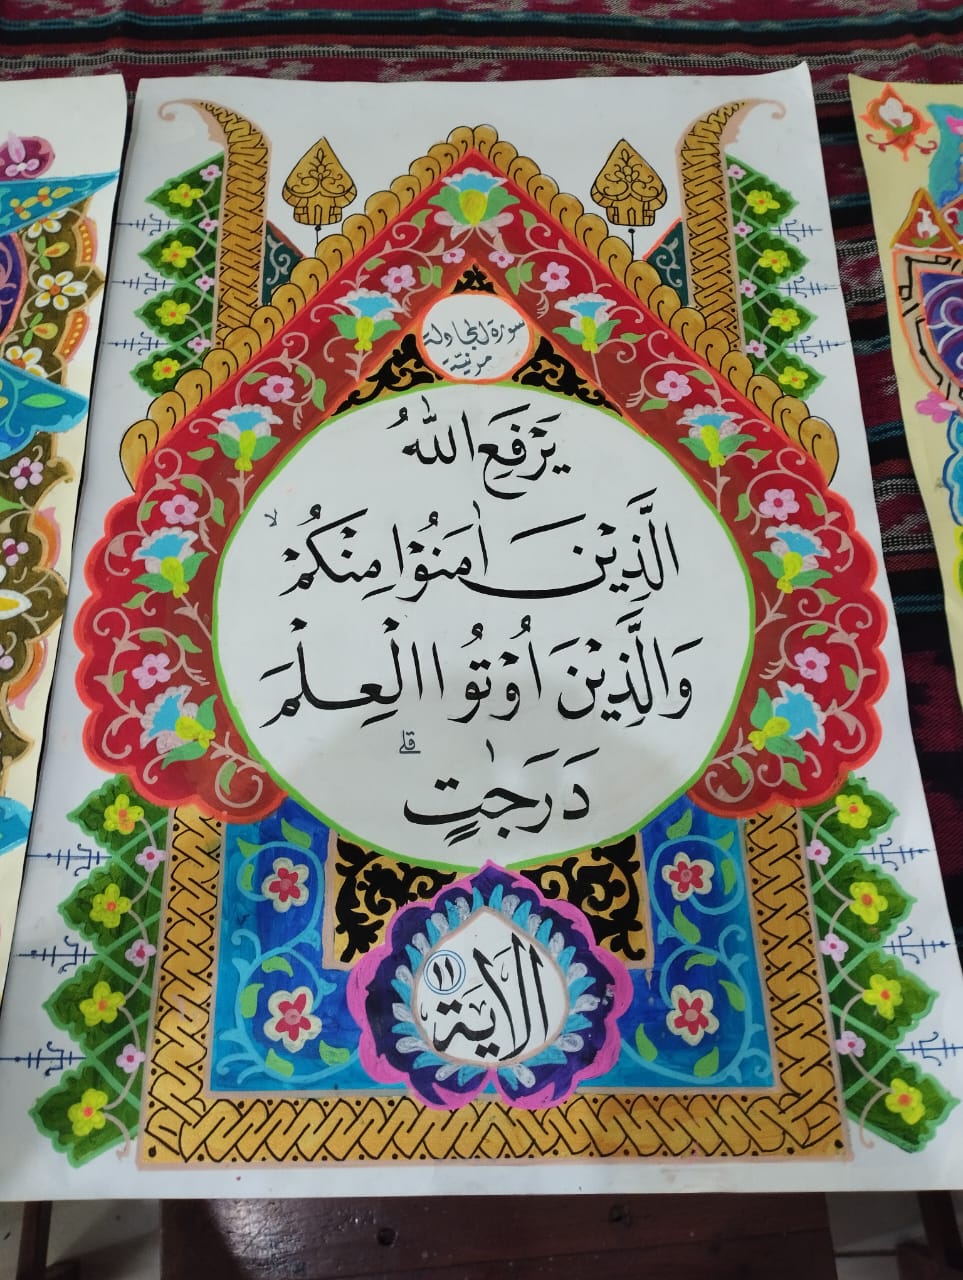 سورة المجادلة
مدنية
يَرْفَعِ اللّٰهُ
الَّذِيْنَ اٰمَنُوْا مِنْكُمْ ۙ
وَالَّذِيْنَ اُوْتُوا الْعِلْمَ
دَرَجٰتٍ ۗ
الاية ١١